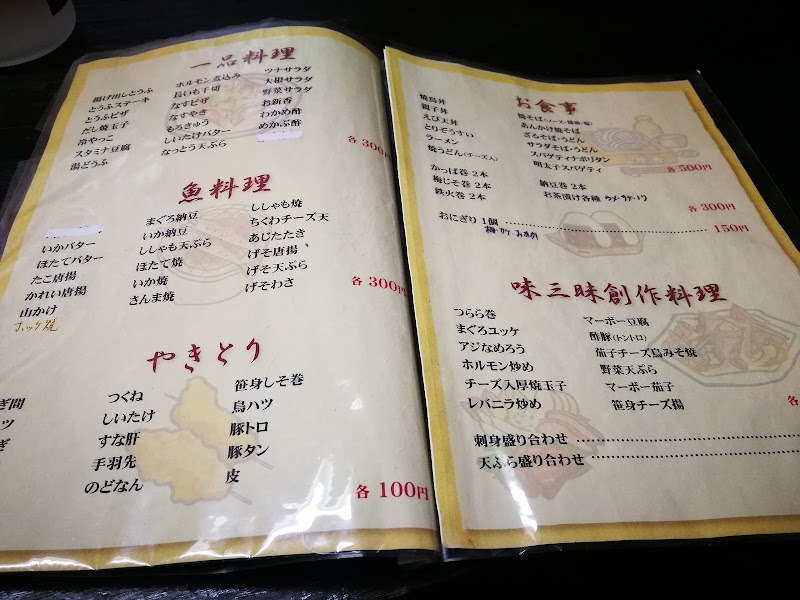 一品料理
揚げ出しとうふ
とうふステーキ
とうふピザ
だし焼玉子
冷やっこ
スタミナ豆腐
湯どうふ
ホルモン煮込み
長いも千切
なすピザ
なすやき
もろきゅう
しいたけバター
なっとう天ぷら
ツナサラダ
大根サラダ
野菜サラダ
お新香
わかめ酢
めかぶ酢
各 300円
魚料理
いかバター
ほたてバター
たこ唐揚
かれい唐揚
山かけ
ホッケ焼
まぐろ納豆
いか納豆
ししゃも天ぷら
ほたて焼
いか焼
さんま焼
ししゃも焼
ちくわチーズ天
あじたたき
げそ唐揚
げそ天ぷら
げそわさ
各 300円
やきとり
つくね
しいたけ
すな肝
手羽先
のどなん
笹身しそ巻
鳥ハツ
豚トロ
豚タン
皮
各 100円
お食事
焼鳥丼
親子丼
えび天丼
とりぞうすい
ラーメン
焼うどん(チーズ入)
焼そば(ソース・醤油・塩)
あんかけ焼そば
ざるそば・うどん
サラダそば・うどん
スパゲティナポリタン
明太子スパゲティ
各 500円
かっぱ巻 2本
梅じそ巻 2本
鉄火巻 2本
納豆巻 2本
お茶漬け各種
各 300円
おにぎり 1個 150円
味三昧創作料理
つらら巻
まぐろユッケ
アジなめろう
ホルモン炒め
チーズ入厚焼玉子
レバニラ炒め
マーボー豆腐
酢豚(トントロ)
茄子チーズ鳥みそ焼
野菜天ぷら
マーボー茄子
笹身チーズ揚
各
刺身盛り合わせ
天ぷら盛り合わせ